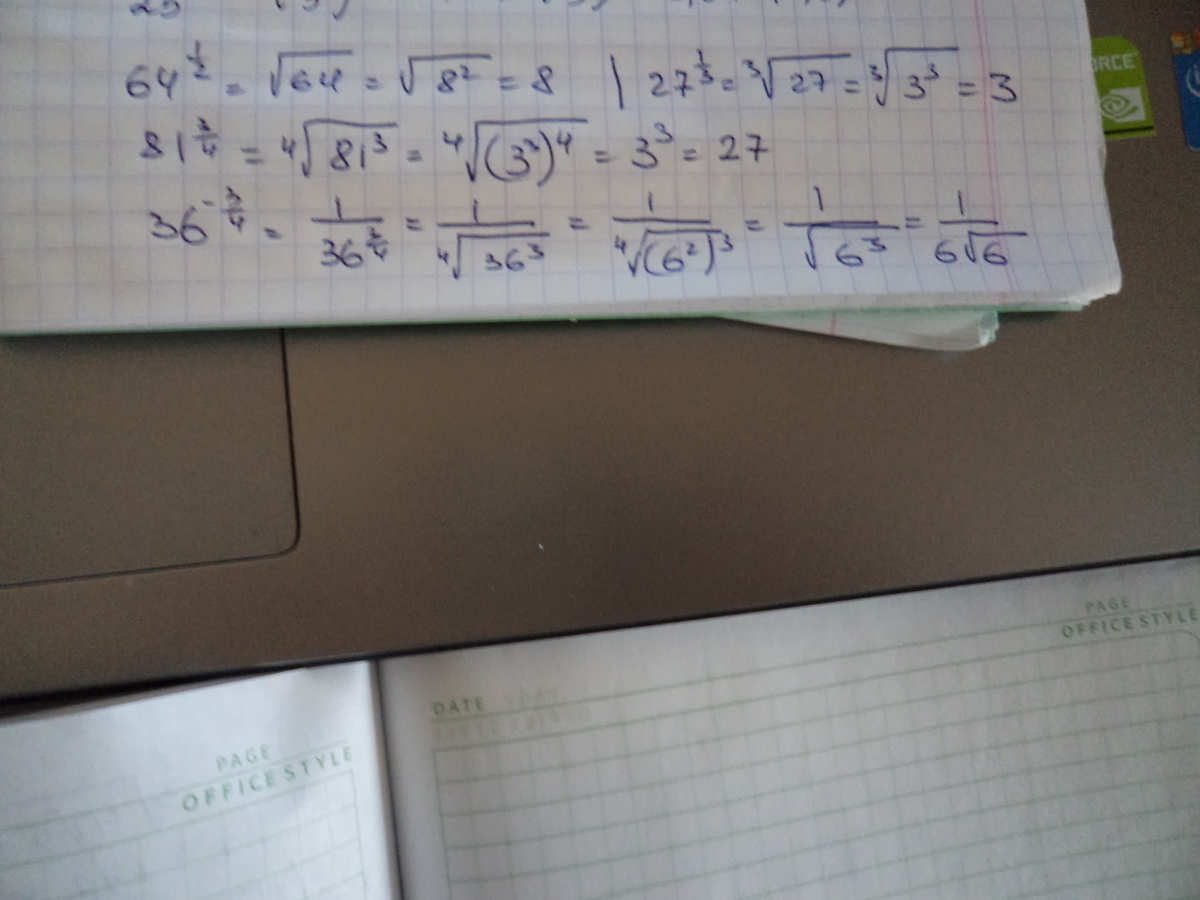 64^{\frac{1}{2}} = \sqrt{64} = \sqrt{8^2} = 8 | 27^{\frac{1}{3}} = \sqrt[3]{27} = \sqrt[3]{3^3} = 3
81^{\frac{3}{4}} = \sqrt[4]{81^3} = \sqrt[4]{(3^3)^4} = 3^3 = 27
36^{-\frac{3}{4}} = \frac{1}{36^{\frac{3}{4}}} = \frac{1}{\sqrt[4]{36^3}} = \frac{1}{\sqrt[4]{(6^2)^3}} = \frac{1}{\sqrt{6^3}} = \frac{1}{6\sqrt{6}}
PAGE
OFFICE STYLE
DATE
PAGE
OFFICE STYLE